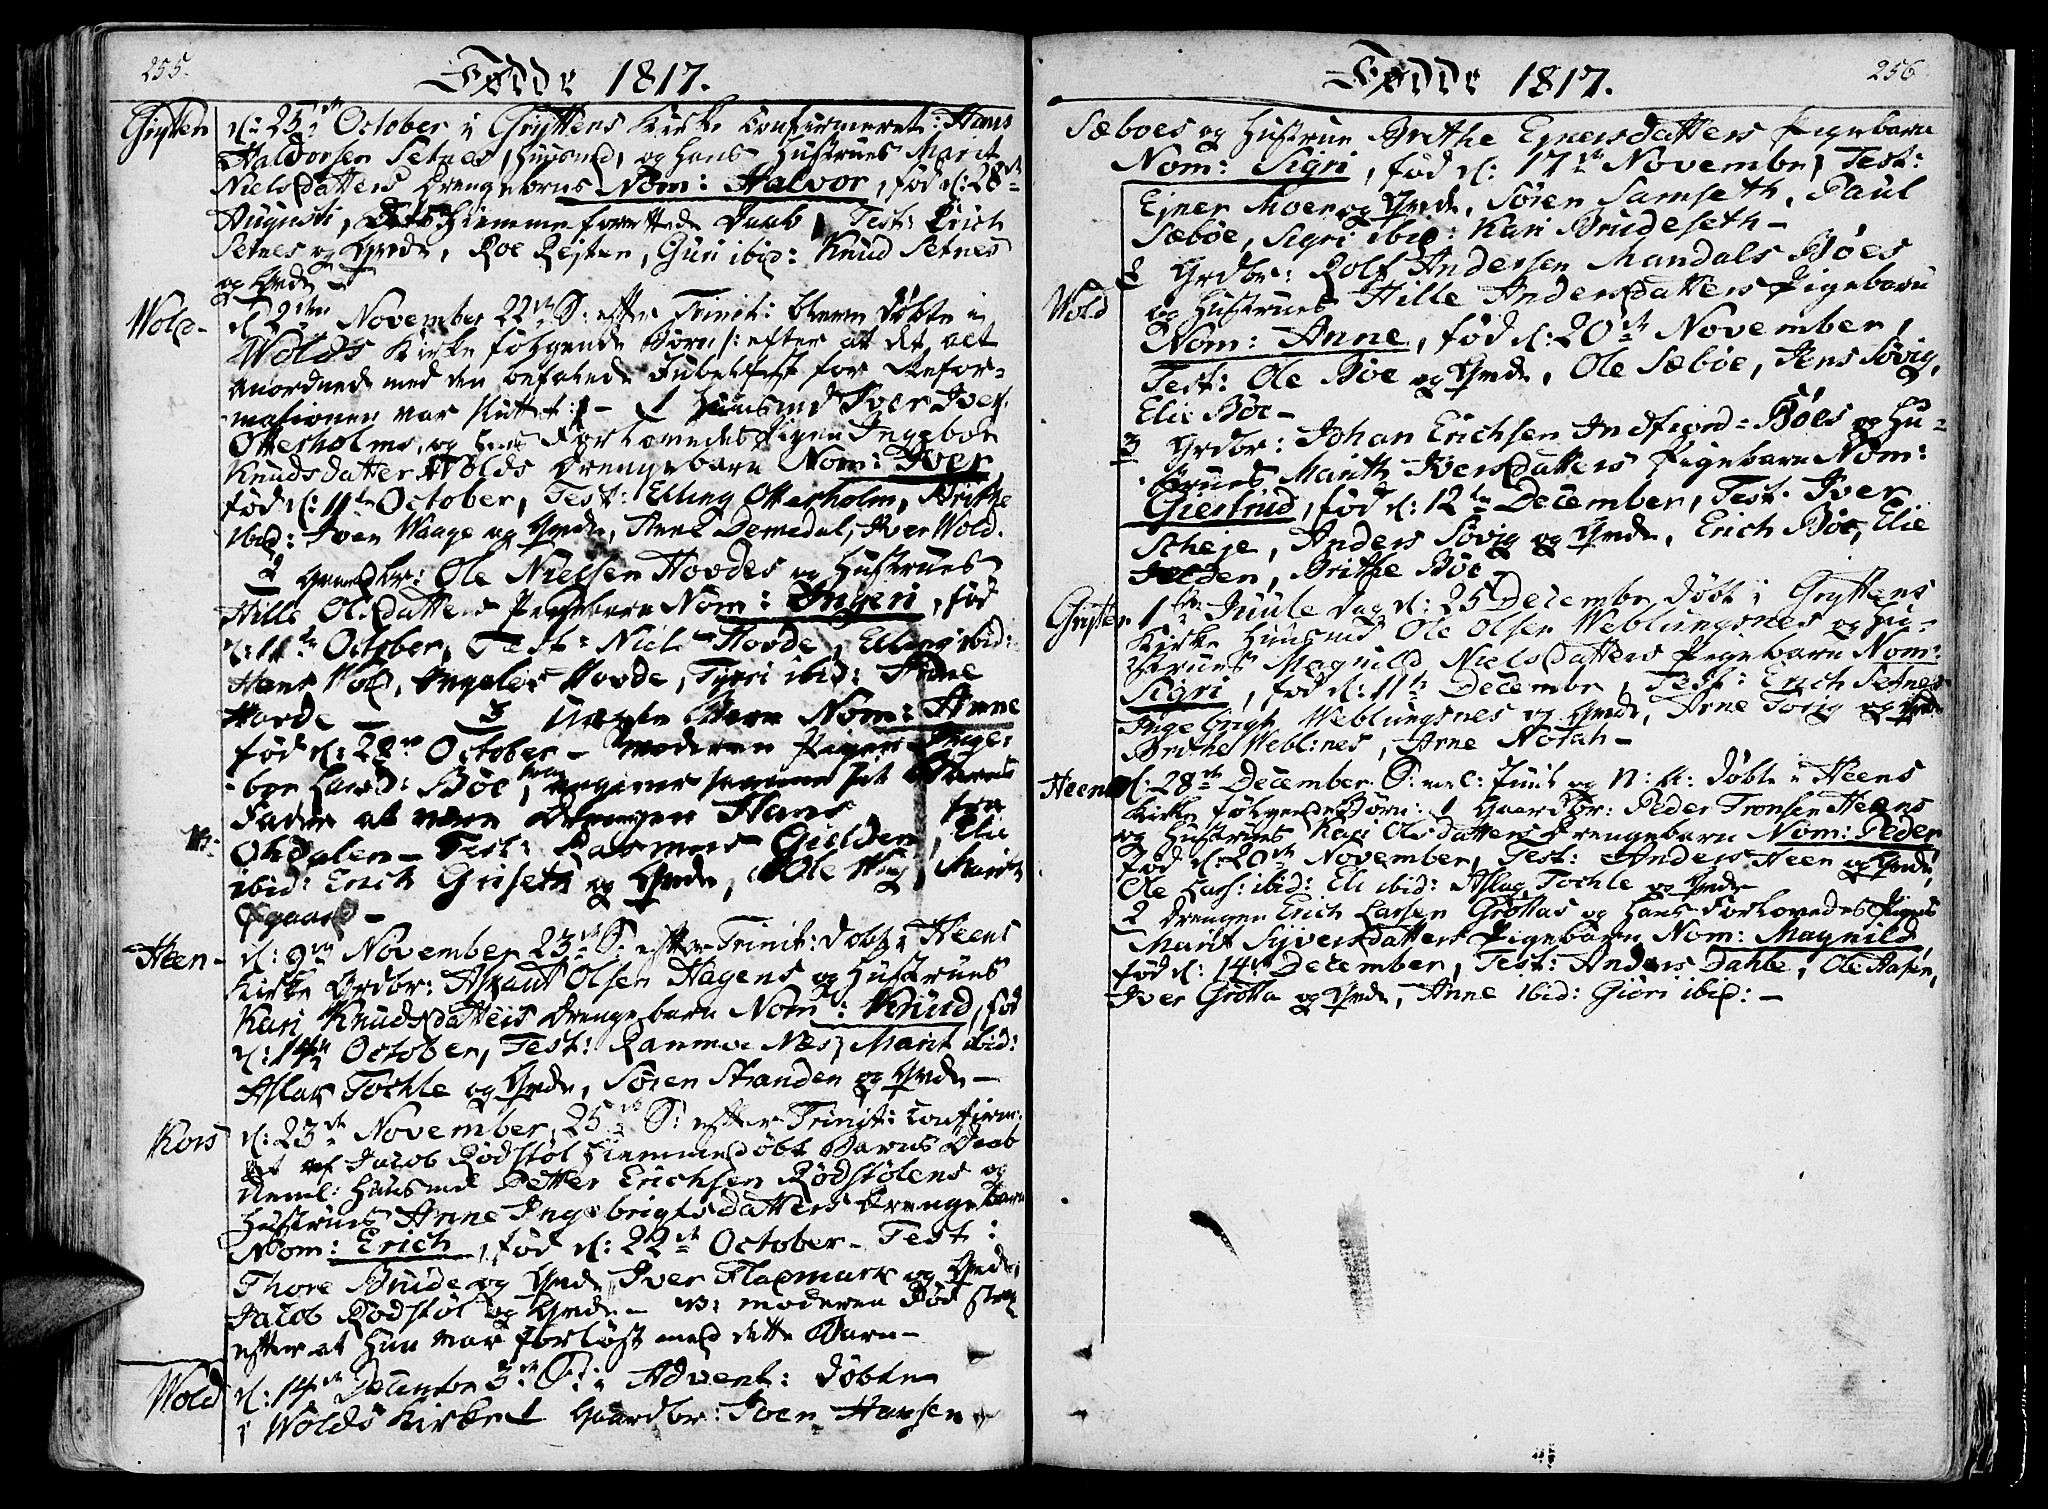 255.
Fødde 1817.
Grytten d: 25de October i Gryttens Kirke Confirmeret: Hans
Haldorsen Setnes, Huusmd, og Hans Hustrues Marit
Nielsdatters Drengebarns Nom: Halvor, fød d: 28de
Augusti, Hiemmeforrettede Daab, Test: Erich
Setnes og Qvinde, Roe Rejten, Guri ibid: Knud Setnes
og Qvinde –
Wold – d 2den November 22de S: efter Trinit: bleven døbte i
Wolds Kirke følgende Børn /: efter at det alt
anordnede med den befalede Jubelfest for Refor-
mationen var sluttet :/ – 1 Huusmd Iver Iver.
Otterholms, og hans Forlovedes Pigen Ingebor
Knudsdatter Wolds Drengebarn Nom: Iver
fød d: 11te October, Test: Elling Otterholm, Brithe
ibid: Iven Waage og Qvinde, Anne Demedal, Iver Wold.
2 Gaardbr: Ole Nielsen Hovdes og Hustrues
Hille Olsdatters Pigebarn Nom: Ingeri, fød
d: 11te October, Test: Niels Hovde, Elling ibid:
Hans Wold, Ingeler Hovde, Tyri ibid: Anne
Hovde – 3 Uægte Barn Nom: Anne
fød d: 28de October – Moderen Pigen Inge-
bor Larsd: Bøe, angiver Sit Barns
Fader at være Drengen Hans fra
Ohdalen – Test: Rasmus Gielden, Elie
ibid: Erich Griseth og Qvinde, Ole Wiig, Marit
Øgaard –
Heen – d: 9de November 23de S: efter Trinit: Døbt i Heens
Kirke Grdbr: Aslaut Olsen Hagens og Hustrues
Kari Knudsdatters Drengebarn Nom: Knud, fød
d: 14de October, Test: Rannve Næs, Marit ibid:
Aslak Tochle og Qvinde, Søren Stranden og Qvinde –
Kors d: 23de November, 25de S: efter Trinit: Confirm:
det af Jacob Rødstøl Hiemmedøbt Barns Daab
Neml: Huusmd Petter Erichsen Rødstølens og
Hustrues Anne Ingebrigtsdatters Drengebarn
Nom: Erich, fød d: 22de October – Test:
Thore Brude og Qvinde Iver Fladmark og Qvinde,
Jacob Rødstøl og Qvinde – NB: moderen Død strax
efter at Hun var forløst med dette Barn –
Wold d: 14de December 3de S: i Advent: Døbte
i Wolds Kirke 1 Gaardbr: Iven Hansen
256
Fødde 1817.
Sæboes og Hustrue Brithe Ejnersdatters Pigebarn
Nom: Sigri, fød d: 17de November, Test:
Ejner Moer og Qvinde, Søren Samseth, Paul
Sæbøe, Sigri ibid: Kari Brudeseth –
Wold 2 Grdbr: Rolf Andersen Mandals Bøes
og Hustrues Hille Andersdatters Pigebarn
Nom: Anne, fød d: 20de November,
Test: Ole Bøe og Qvinde, Ole Sæbøe, Jens Søvig,
Elie Bøe –
3 Grdbr: Johan Erichsen Indfiord = Bøes og Hu-
strues Marith Iversdatters Pigebarn Nom:
Giertrud, fød d: 12te December, Test: Iver
Scheje, Anders Søvig og Qvinde, Erich Bøe, Elie
Jelden, Brithe Bøe –
Grytten 1te Juule Dag d: 25 Decembr døbt i Gryttens
Kirke Huusmd Ole Olsen Weblungsnes og Hu-
strues Magnild Nielsdatters Pigebarn Nom:
Sigri, fød d: 11te December, Test: Erich Setnes
Ingebrigt Weblungsnes og Qvinde, Arne Torig og Qvinde
Brithe Webl:nes, Arne Norah –
Heen d: 28de December S: mel: Juul og N: A: døbte i Heens
Kirke følgende Børn: 1 Gaardbr: Peder Tronsen Heens
og Hustrues Kari Olsdatters Drengebarn Nom: Peder
fød d: 20de November, Test: Anders Heen og Qvinde,
Ole Lars: ibid: Eli ibid: Aslag Tochle og Qvinde
2 Drengen Erich Larsen Grøttas og Hans Forlovedes Pigens
Marit Syversdatters Pigebarn Nom: Magnild,
fød d: 14de December, Test: Anders Dahle, Ole Aasen,
Iver Grøtta og Qvinde, Anne ibid: Giøri ibid: –